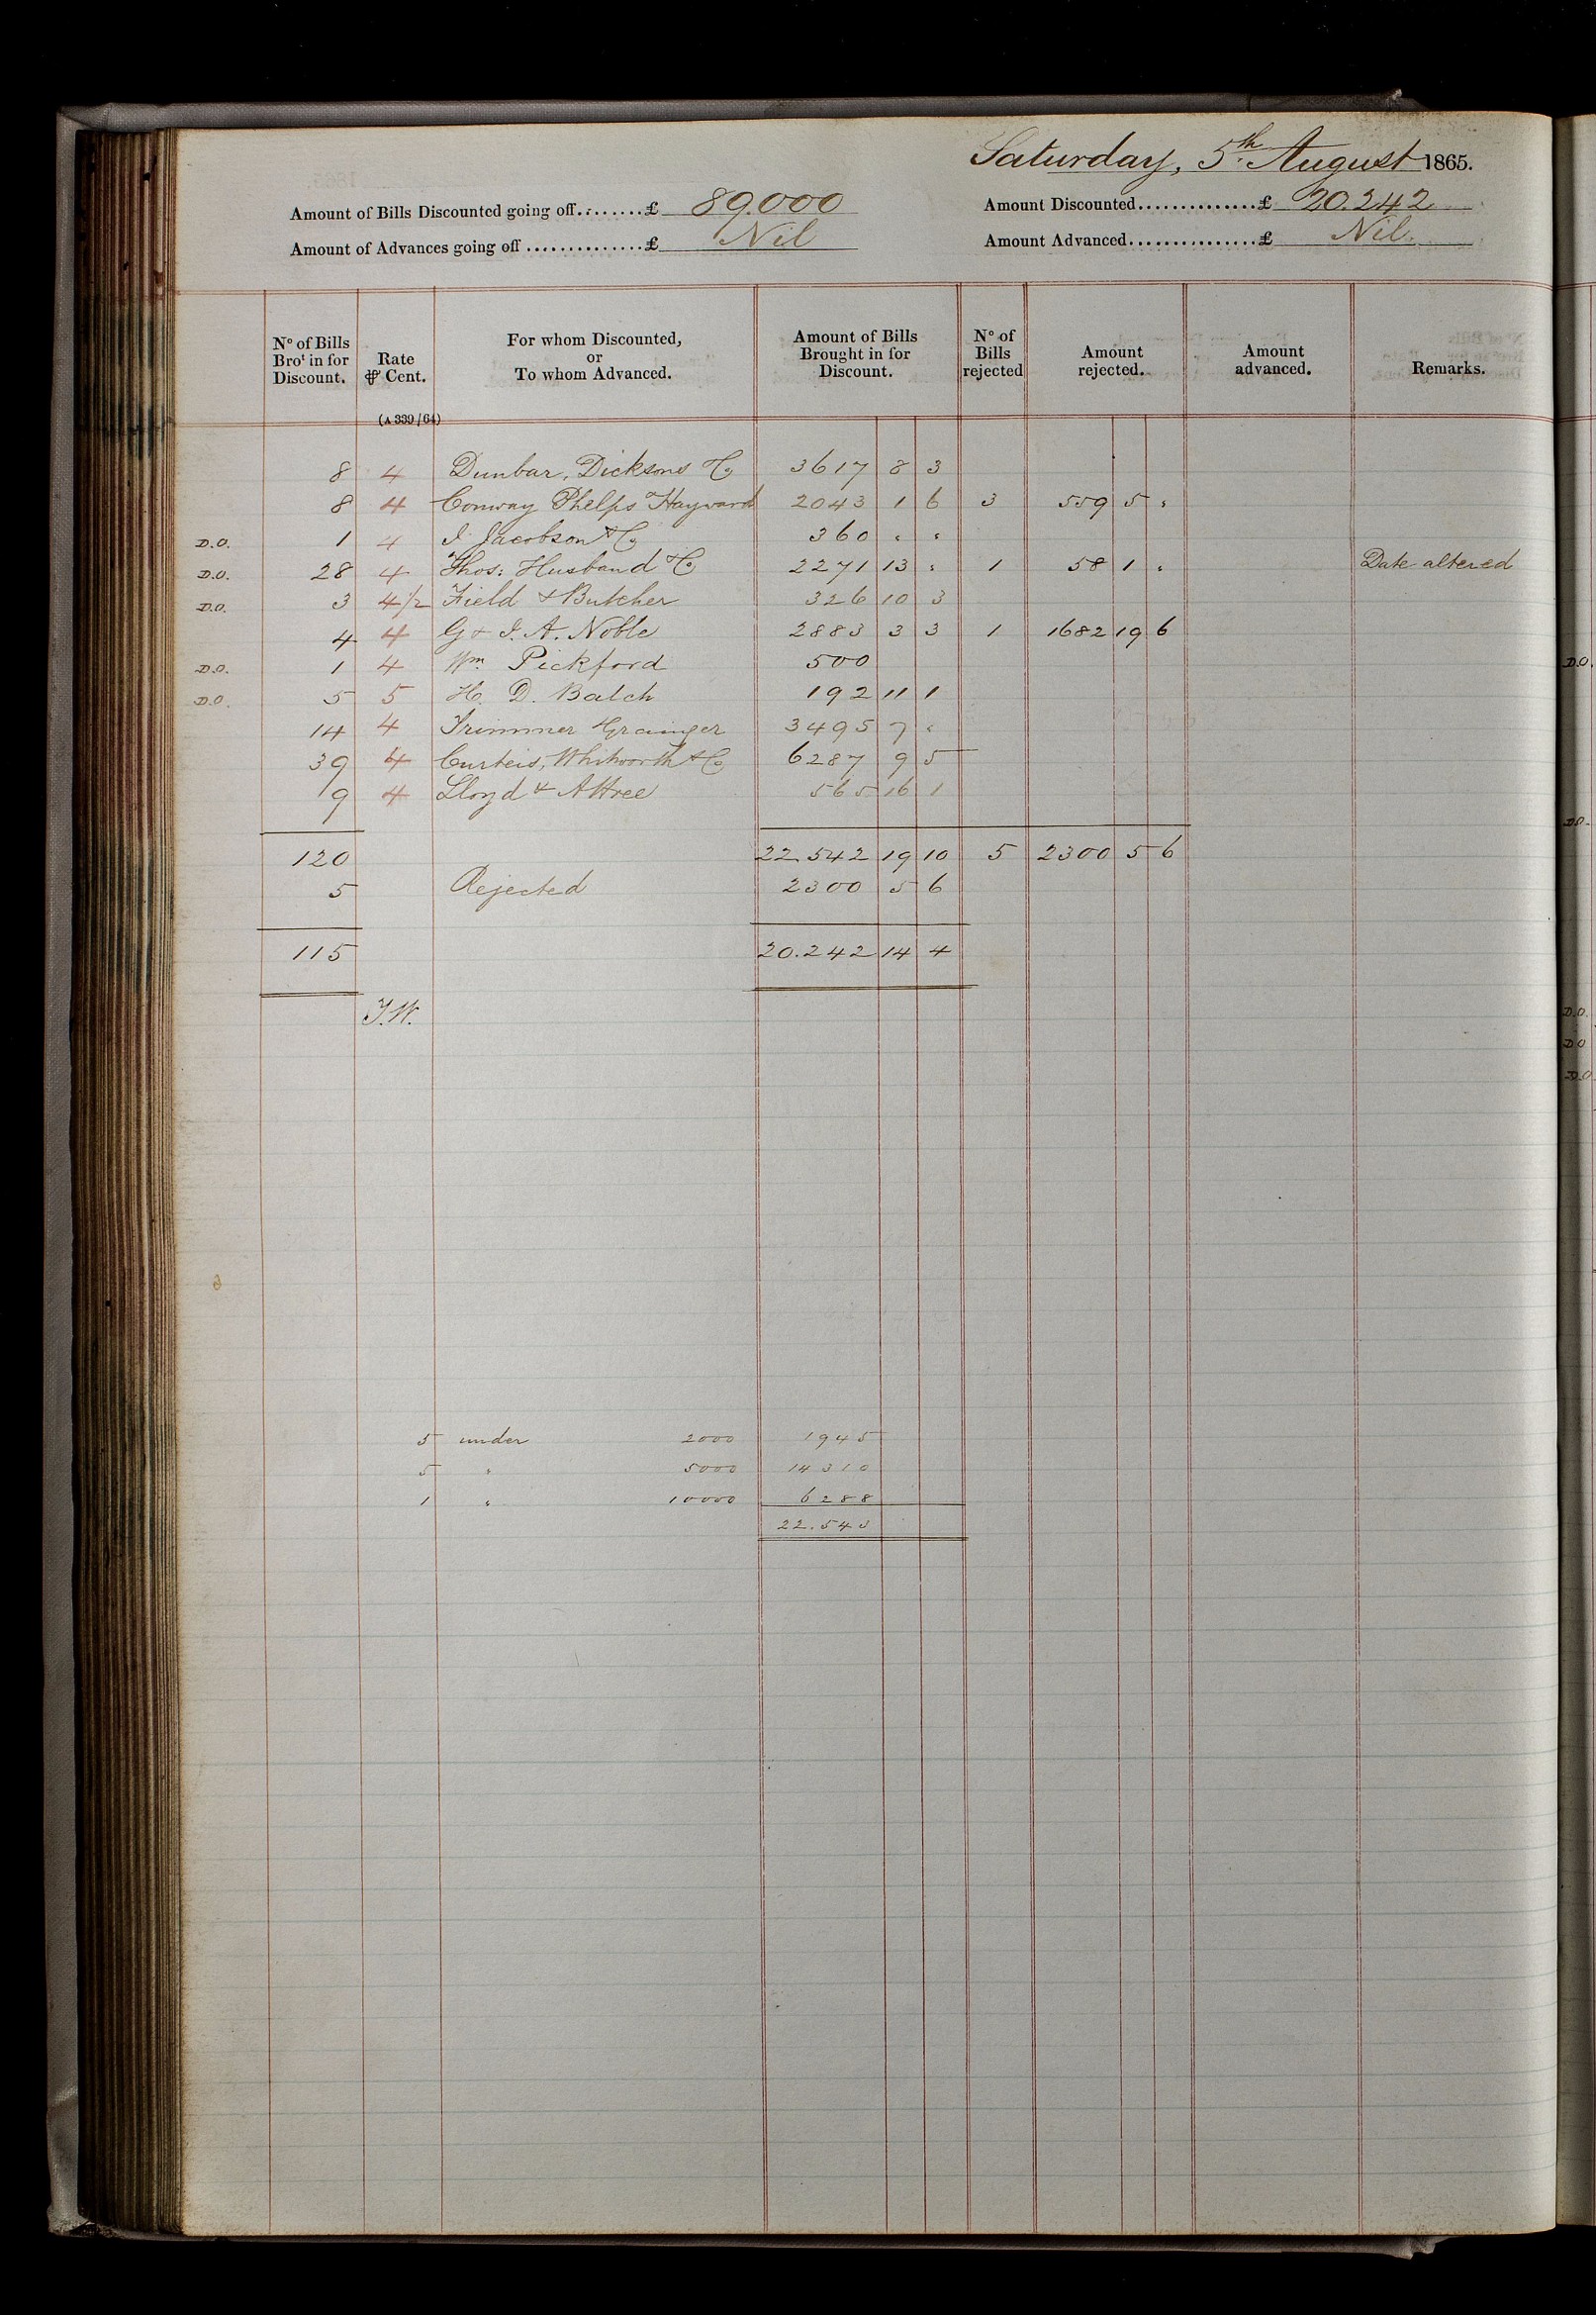 Saturday, 5th August 1865.
Amount of Bills Discounted going off........£ 89.000 Amount Discounted..............£ 20.242
Amount of Advances going off ..............£ Nil Amount Advanced................£ Nil.
No of Bills Brot in for Discount. Rate ⅌ Cent. For whom Discounted, or To whom Advanced. Amount of Bills Brought in for Discount. No of Bills rejected Amount rejected. Amount advanced. Remarks.
(A 339/64)
8 4 Dunbar, Dicksons & Co 3617 8 3
8 4 Conway Phelps & Hayward 2043 1 6 3 559 5 "
D.O. 1 4 I. Jacobson & Co 360 " "
D.O. 28 4 Thos: Husband & Co 2271 13 " 1 58 1 " Date altered
D.O. 3 4½ Field & Butcher 326 10 3
4 4 G & J. A. Noble 2883 3 3 1 1682 19 6
D.O. 1 4 Wm Pickford 500
D.O. 5 5 H. D. Balch 192 11 1
14 4 Trimmer Grainger 3495 7 "
39 4 Curteis, Whitworth & Co 6287 9 5
9 4 Lloyd & Attree 565 16 1
120 22.542 19 10 5 2300 5 6
5 Rejected 2300 5 6
115 20.242 14 4
T.W.
5 under 2000 1945
5 " 5000 14310
1 " 10000 6288
22.543
D.O.
D.O.
D.O.
D.O
D.O